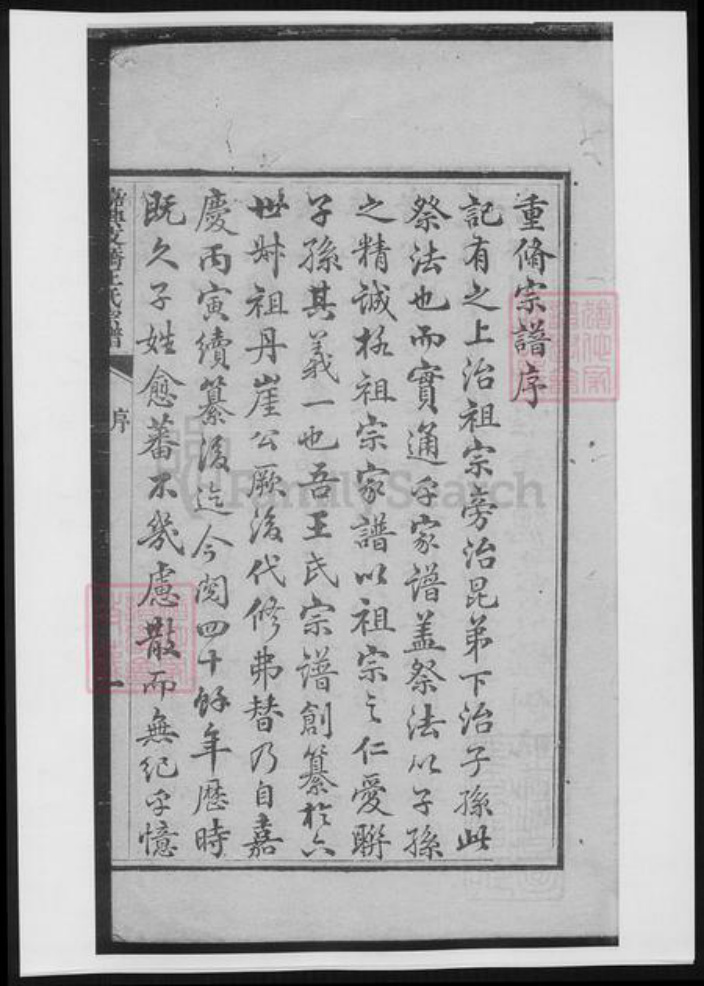 重脩宗譜序
記有之上治祖宗旁治昆弟下治子孫此
祭法也而實通乎家譜盖祭法以子孫
之精誠格祖宗家譜以祖宗之仁愛聯
子孫其義一也吾王氏宗譜創纂於六
世叔祖丹崖公厥後代修弗替乃自嘉
慶丙寅續纂後迄今閱四十餘年歷時
既久子姓愈蕃不幾慮散而無紀乎憶
王氏宗譜
序
一
FamilySearch